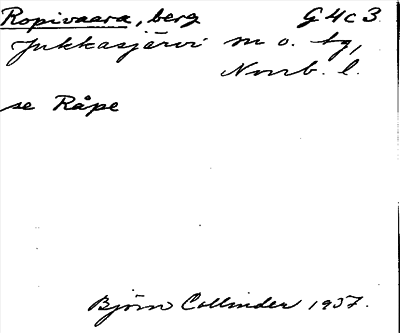 Ropivaara, berg G 4 c 3
Jukkasjärvi sn o. tg,
Norrb. l.
se Råpe
Björn Collinder 1937.